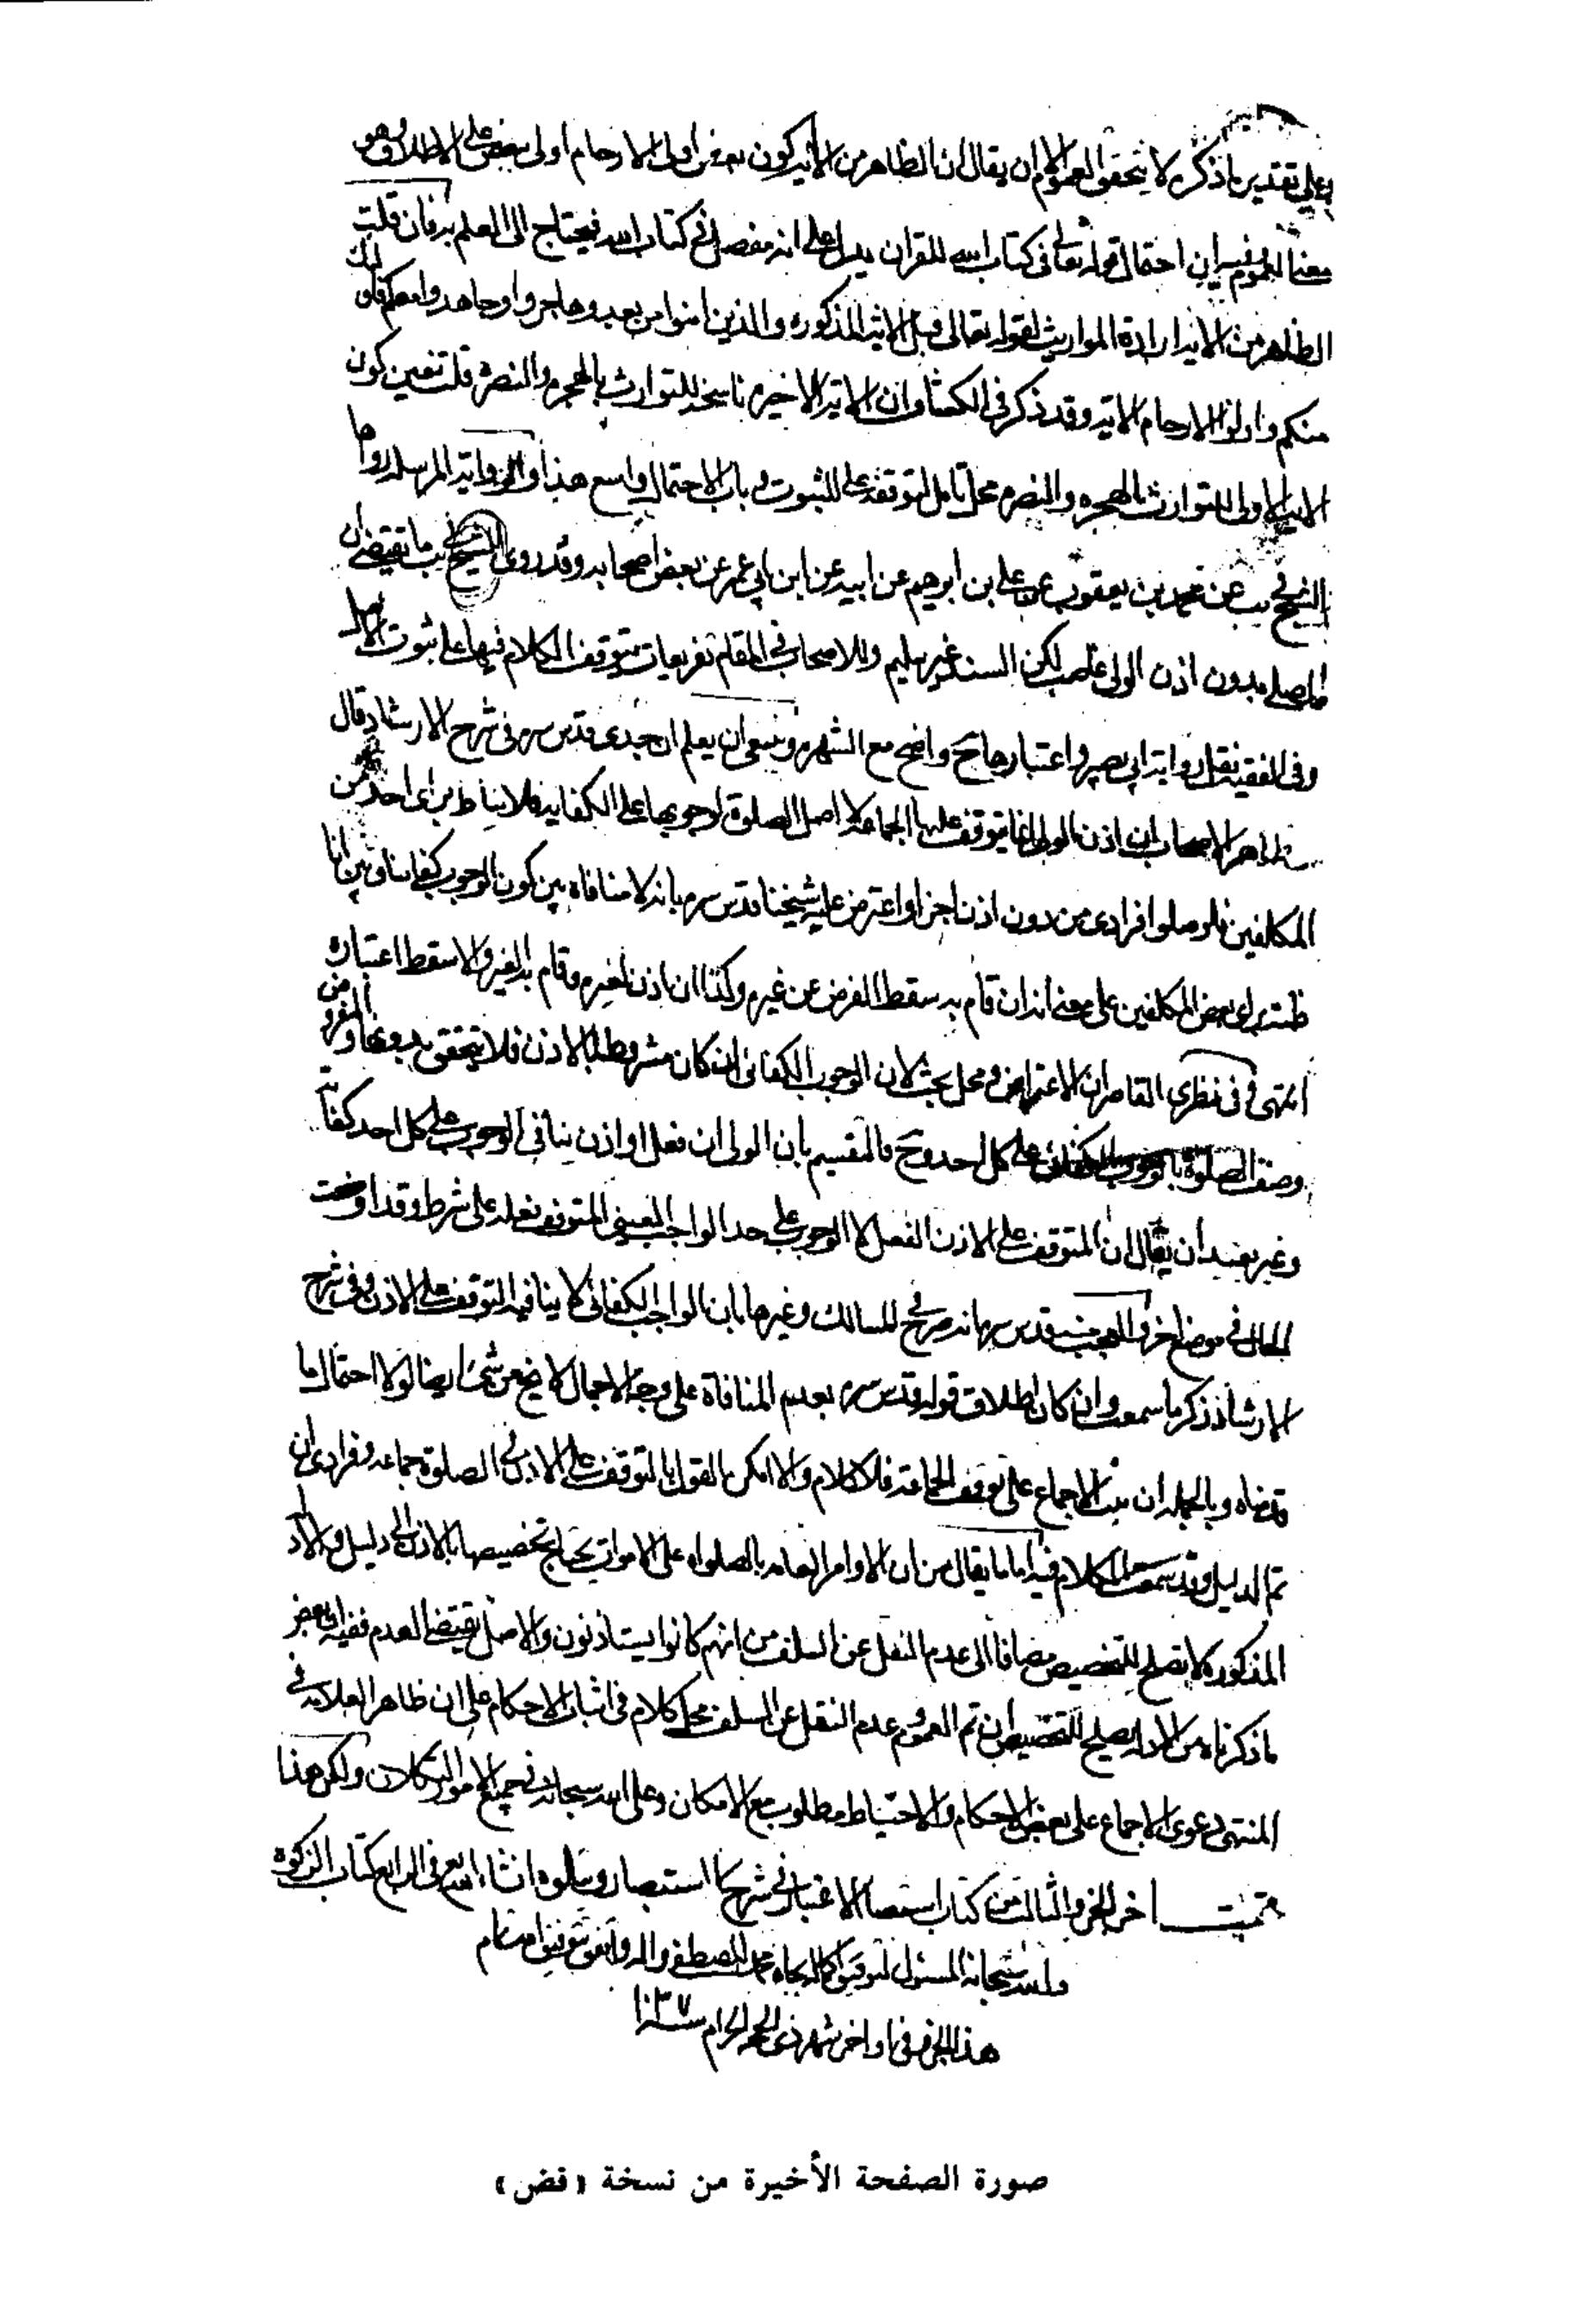 وعلى تقدير ما ذكره لا يتحقق العموم الا ان يقال ان الظاهر من الاية كون بعض اولى الارحام اولى ببعض على الاطلاق وهو
معنى العموم وفيه ان احتمال قوله تعالى في كتاب الله للقران يدل على انه مفصل في كتاب الله فيحتاج الى العلم به فان قلت
الظاهر من الاية ارادة المواريث لقوله تعالى قبل الاية المذكورة والذين امنوا من بعد وهاجروا وجاهدوا معكم فاولئك
منكم واولوا الارحام الاية وقد ذكر في الكشاف ان الاية الاخيرة ناسخة للتوارث بالهجرة والنصرة قلت تعين كون
الاية الاولى للتوارث بالهجرة والنصرة محل تامل لتوقفه على الثبوت و باب الاحتمال واسع هذا والرواية المرسلة رواها
الشيخ في يب عن محمد بن يعقوب عن علي بن ابرهيم عن ابيه عن ابن ابي عمير عن بعض اصحابه وقد روى الشيخ في يب ما يقتضي ان
المصلي بدون اذن الولي غاصب لكن السند غير سليم وللاصحاب في المقام تفريعات يتوقف الكلام فيها على ثبوت الاصل
وفي الفقيه نقل رواية ابي بصير واعتبارها ح واضح مع الشهرة وينبغي ان يعلم ان جدي قدس سره في شرح الارشاد قال
ظاهر الاصحاب ان اذن الولي انما يتوقف عليها الجماعة لا اصل الصلوة لوجوبها على الكفاية فلا يناط براى احد من
المكلفين فلو صلوا فرادى من دون اذن اجزا واعترض عليه شيخنا قدس سره بانه لا منافاة بين كون الوجوب كفائيا وبين اناطته
براى بعض المكلفين على معنى انه ان قام به سقط الفرض عن غيره وكذا ان اذن لغيره وقام به الغير والا سقط اعتباره
انتهى وفي نظري القاصر ان الاعتراض محل بحث لان الوجوب الكفائي ان كان مشروطا بالاذن فلا يتحقق بدونها والمفروض
وصف الصلوة بالوجوب الكفائي على كل احد وح فالتقسيم بان الولي ان فعل او اذن ينافي الوجوب على كل احد كفاية
وغير بعيد ان يقال ان المتوقف على الاذن الفعل لا الوجوب على حد الواجب العيني المتوقف فعله على شرط وقد اوضحت
الحال في موضع اخر والعجب منه قدس سره انه صرح في المسالك وغيرها بان الواجب الكفائي لا ينافيه التوقف على الاذن وفي شرح
الارشاد ذكر ما سمعت وان كان اطلاق قوله قدس سره بعدم المنافاة على وجه الاجمال لا يخ عن شئ ايضا لولا احتمال ما
قدمناه وبالجملة ان ثبت الاجماع على توقف الجماعة فلا كلام والا امكن القول بالتوقف على الاذن في الصلوة جماعة وفرادى ان
تم الدليل وقد سمعت الكلام فيه اما ما يقال من ان الاوامر العامة بالصلواة على الاموات يحتاج تخصيصها بالاذن الى دليل والادلة
المذكورة لا تصلح للتخصيص مضافا الى عدم النقل عن السلف من انهم كانوا يستاذنون والاصل يقتضي العدم ففيه ان بعض
ما ذكرناه من الادلة يصلح للتخصيص ان تم العموم و عدم النقل عن السلف محل كلام في اثبات الاحكام على ان ظاهر العلامة في
المنتهى دعوى الاجماع على بعض الاحكام والاحتياط مطلوب مع الامكان وعلى الله سبحانه في جميع الامور التكلان وليكن هذا
اخر الجزء الثالث من كتاب استقصاء الاعتبار في شرح الاستبصار ويتلوه انشاء الله تع في الرابع كتاب الزكوة
والله سبحانه المسئول لتوفيق اكماله بجاه محمد المصطفى واله واتفق توفيق اتمام
هذا الجزء في اواخر شهر ذي الحجة الحرام سنة ١٠٣٧
صورة الصفحة الأخيرة من نسخة «فض»